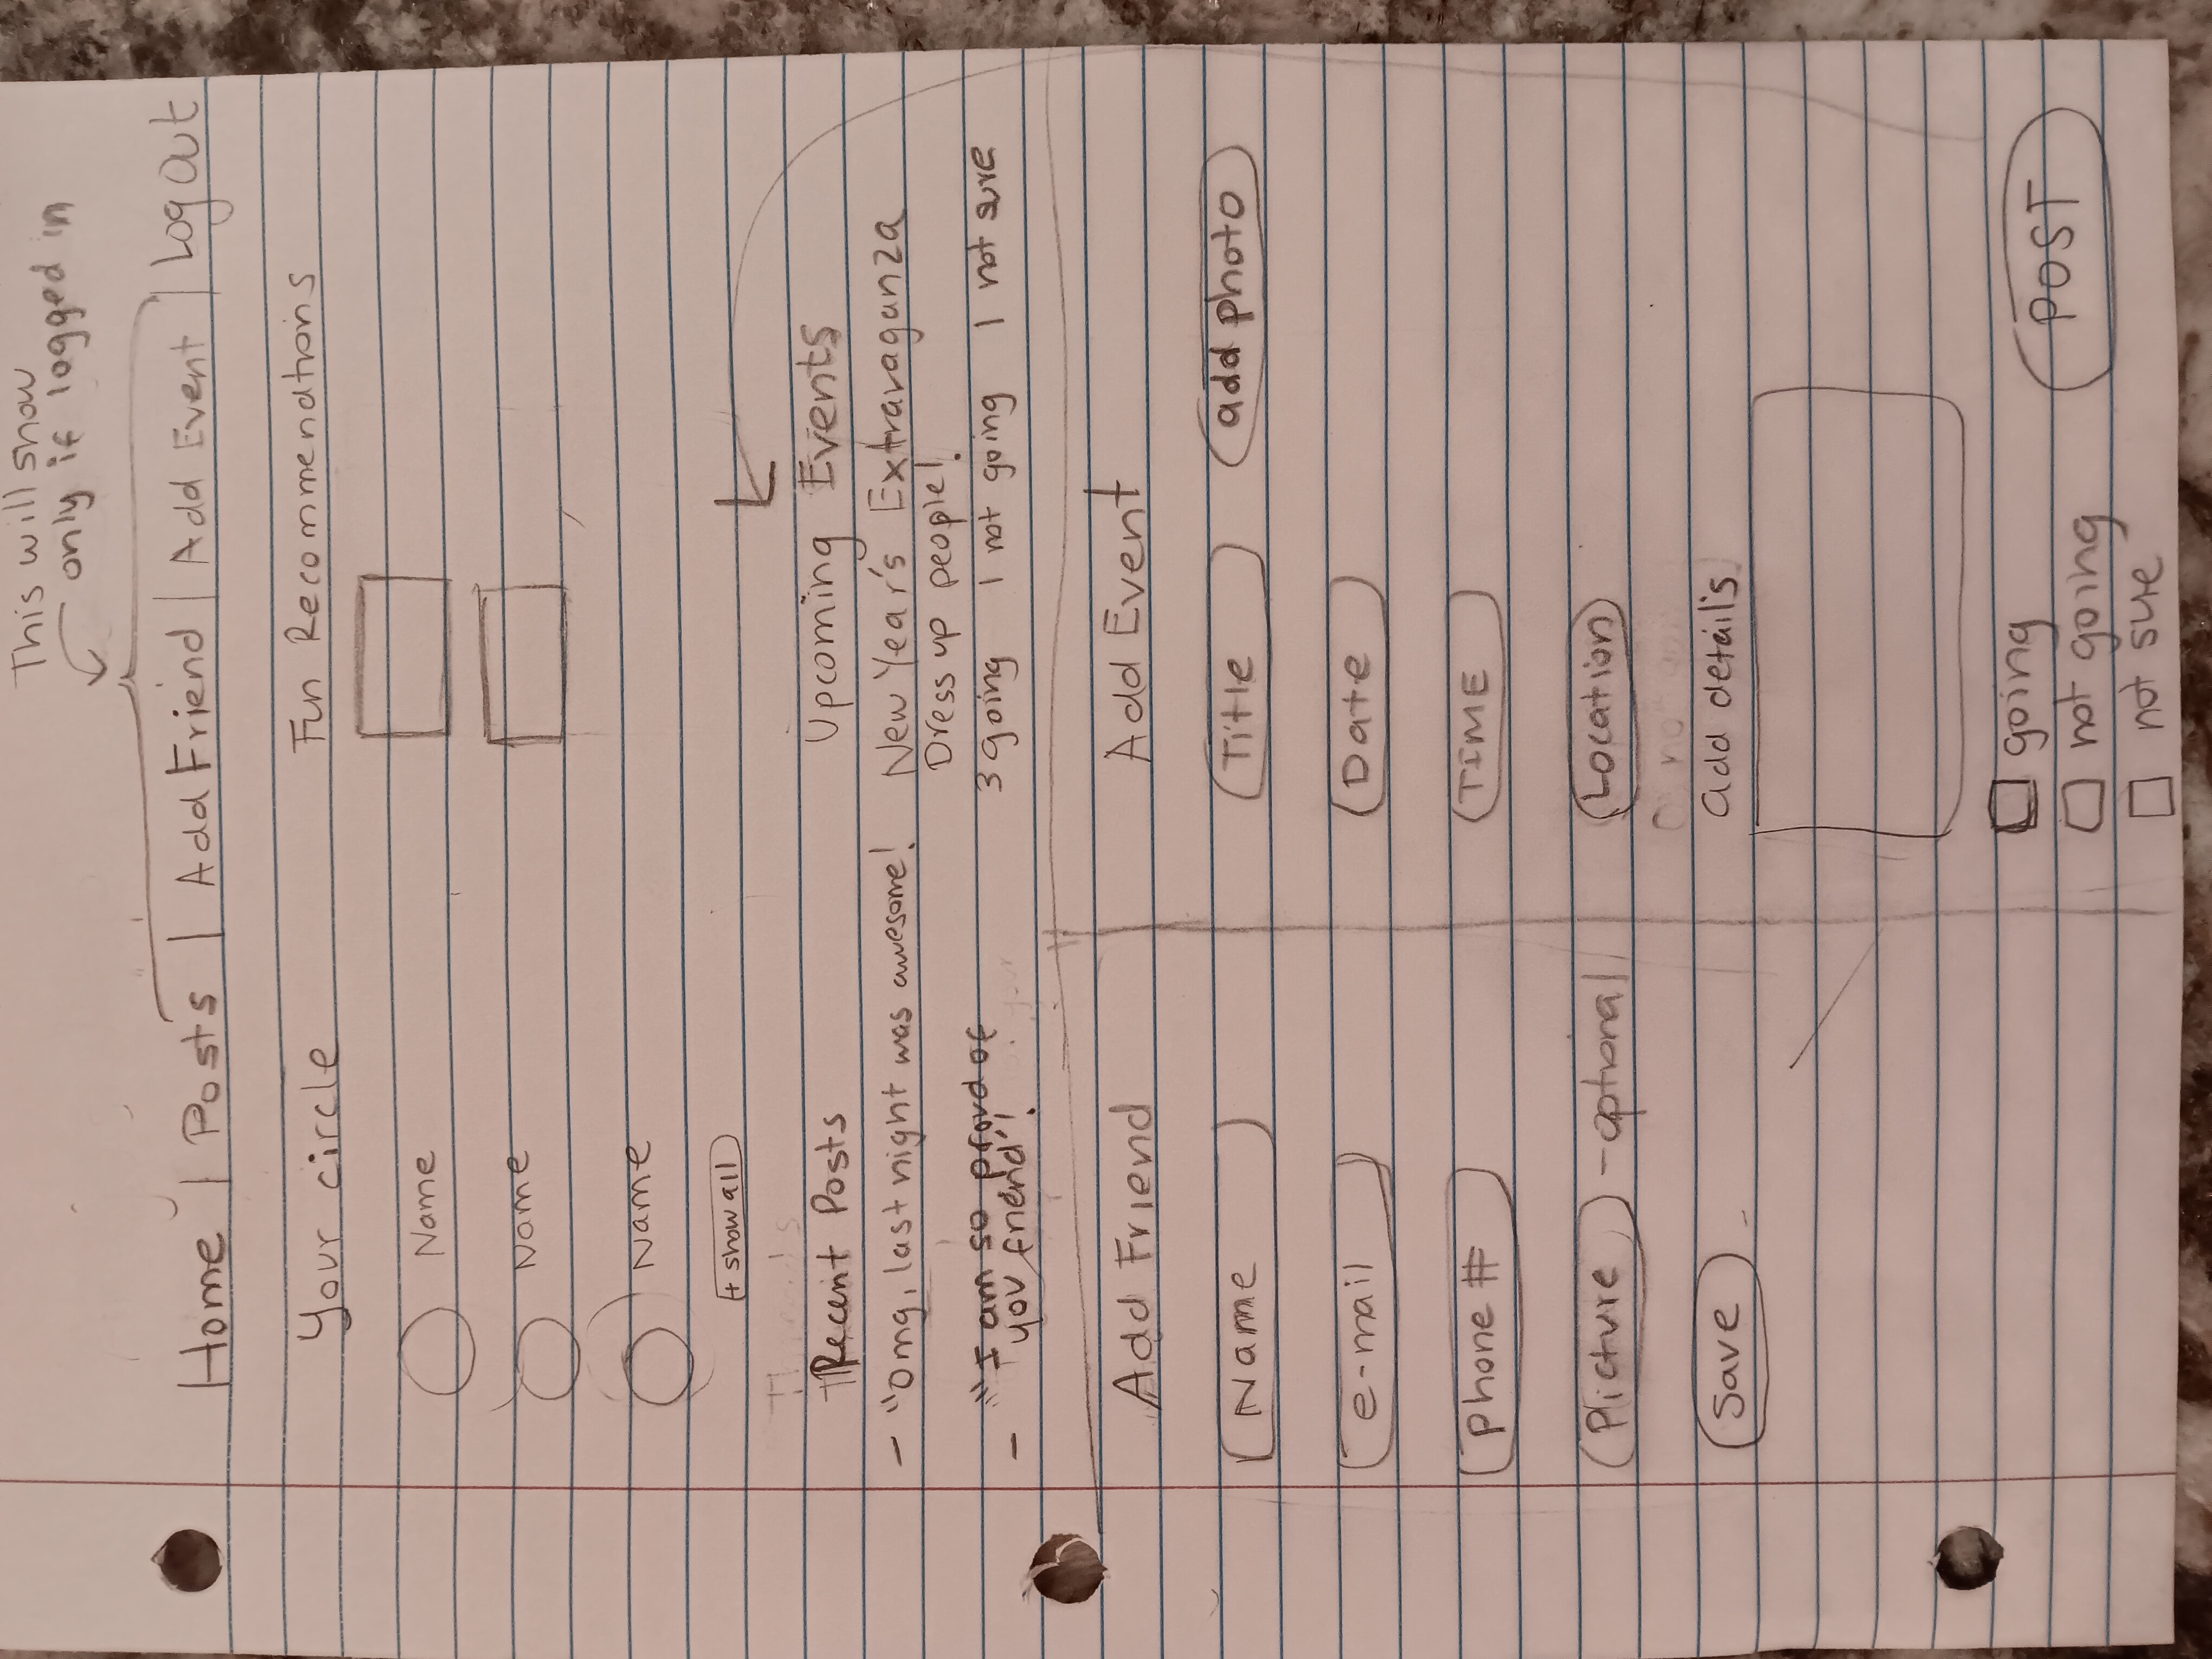 This will show
only if logged in
Home | Posts | Add Friend | Add Event | Log Out
Your circle
Fun Recommendations
Name
Name
Name
+ show all
Recent Posts
- "Omg, last night was awesome!
- "I am so proud of
you friend"!
Upcoming Events
New Year's Extravaganza
Dress up people!
3 going 1 not going 1 not sure
Add Friend
Name
e-mail
Phone #
Picture - optional
Save
Add Event
Title
add photo
Date
TIME
Location
add details
going
not going
not sure
POST